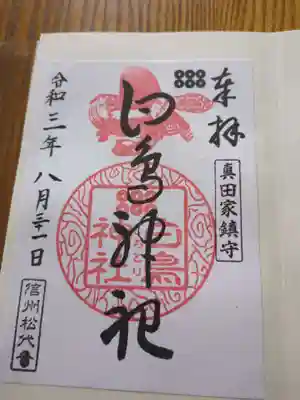 奉拝
真田家鎮守
白鳥神社
白鳥神社
令和三年八月
日
信州松代